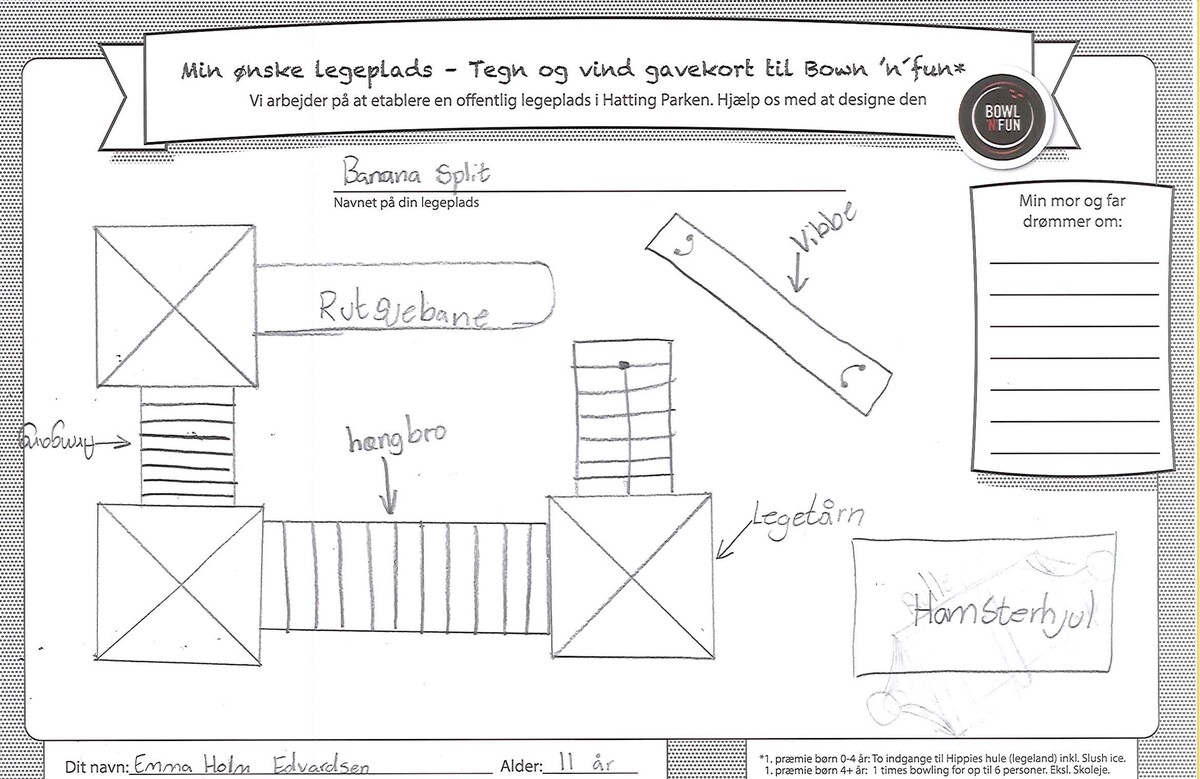 Min ønske legeplads - Tegn og vind gavekort til Bown 'n´fun*
Vi arbejder på at etablere en offentlig legeplads i Hatting Parken. Hjælp os med at designe den
BOWL
'N'FUN
Banana Split
Navnet på din legeplads
Min mor og far
drømmer om:
Vibbe
Rutsjebane
hængbro
Legetårn
Hamsterhjul
Dit navn: Emma Holm Edvardsen
Alder: 11 år
*1. præmie børn 0-4 år: To indgange til Hippies hule (legeland) inkl. Slush ice.
1. præmie børn 4+ år: 1 times bowling for op til 6 personer. Eksl. Skoleje.